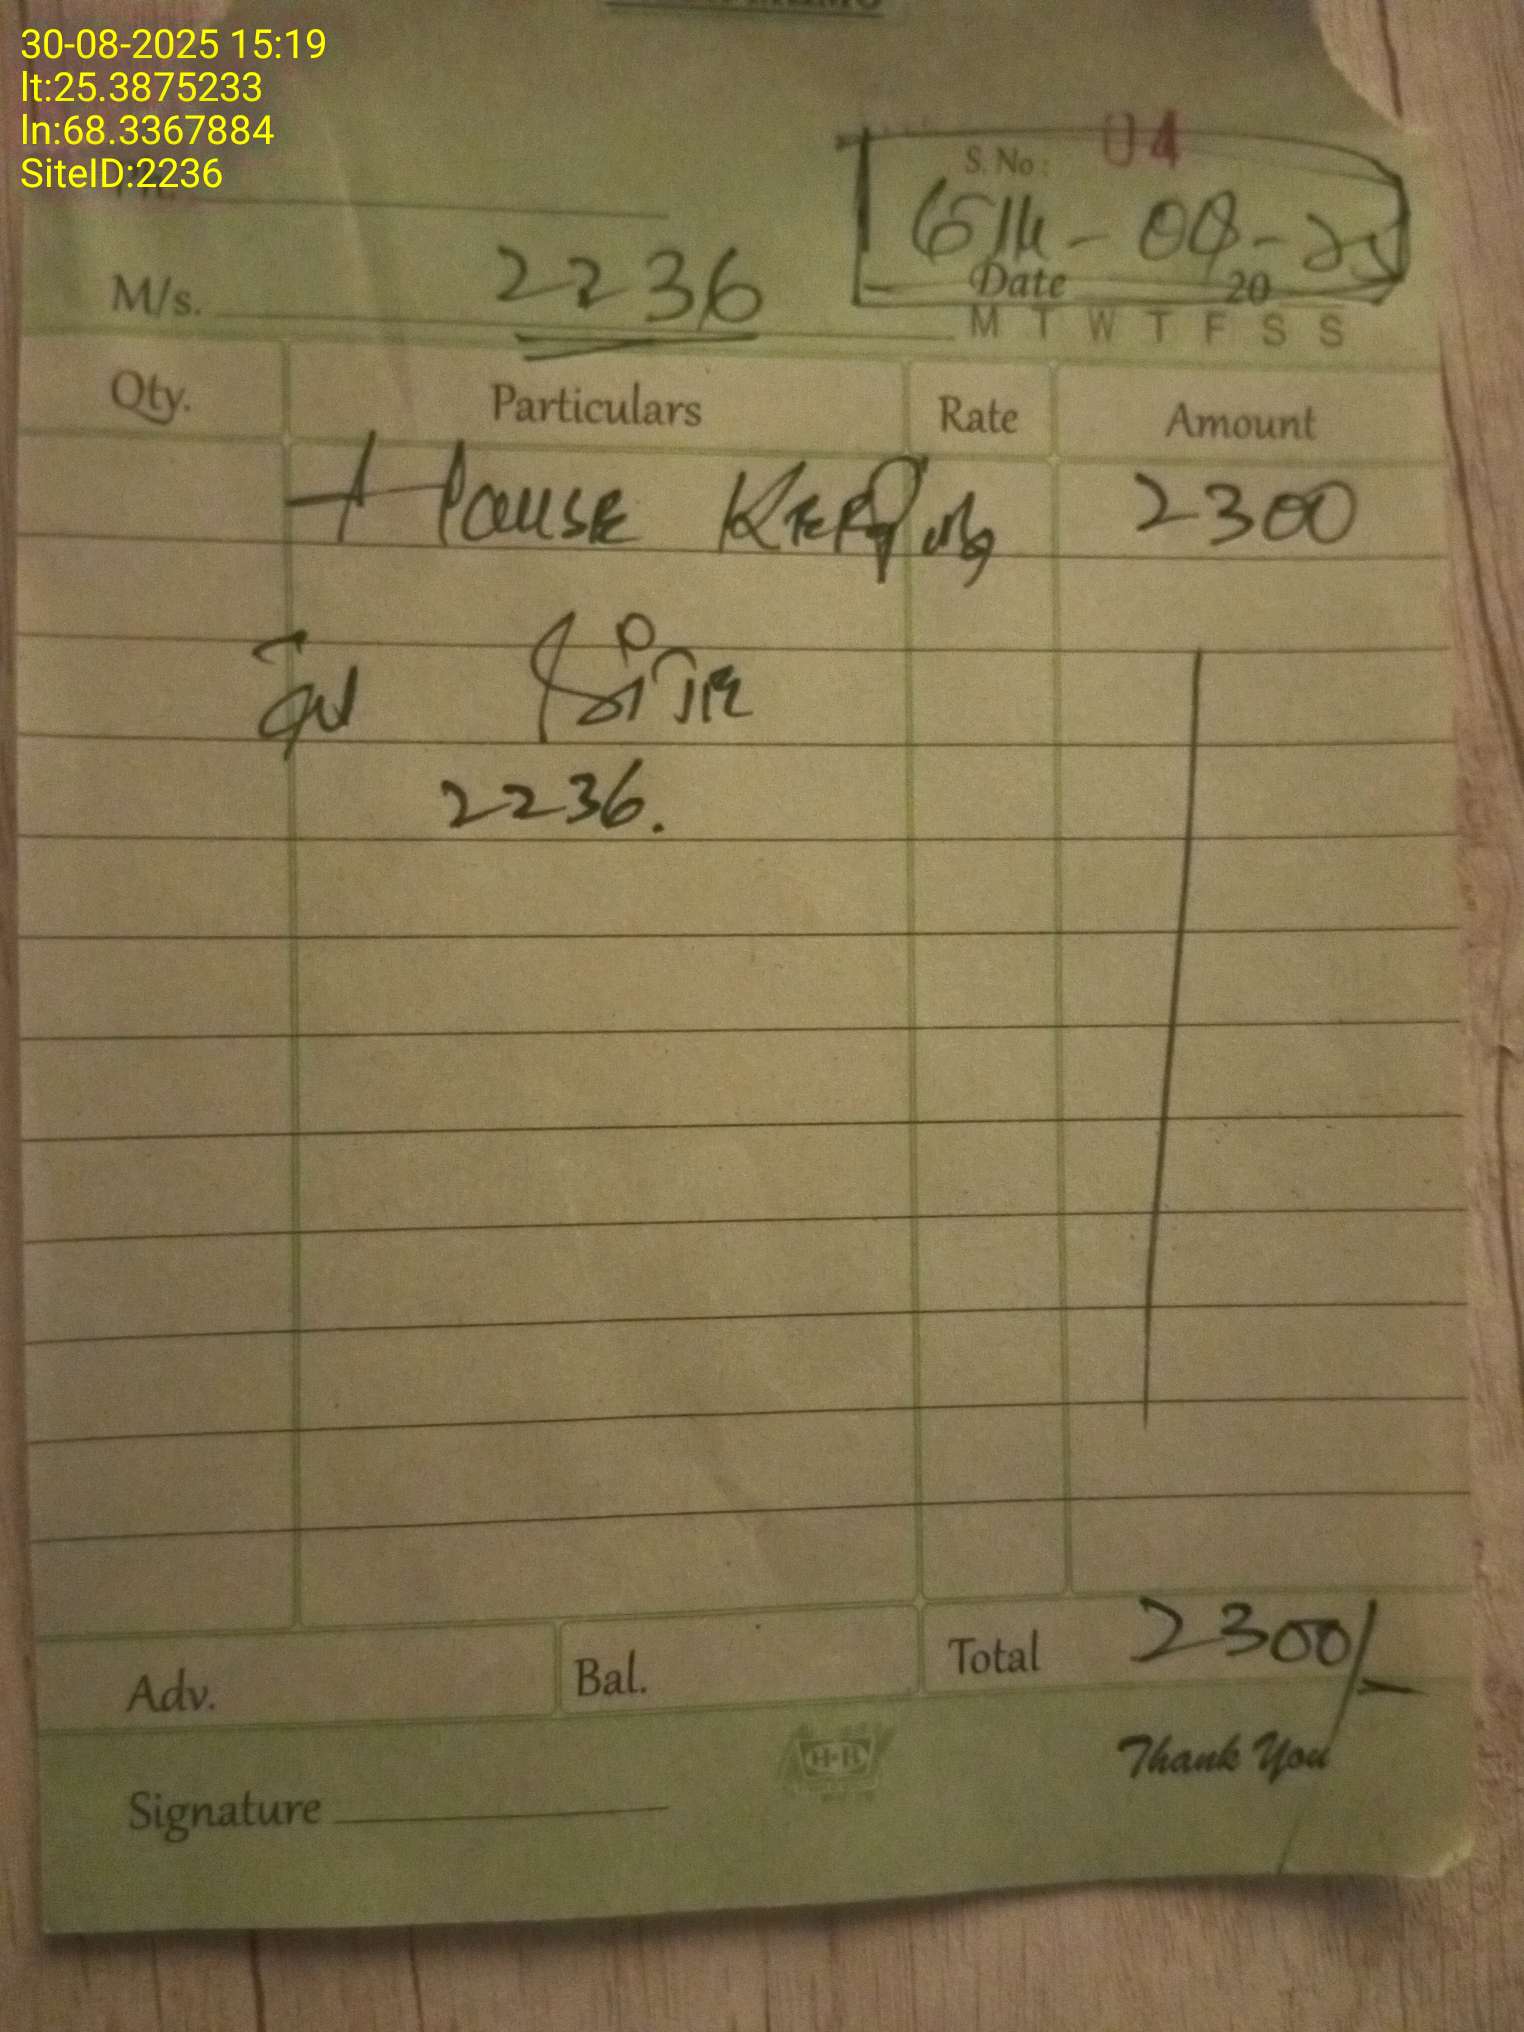 30-08-2025 15:19
lt:25.3875233
ln:68.3367884
SiteID:2236
S. No: 04
Date 20
M/s. 2236
M T W T F S S
Qty. Particulars Rate Amount
HOUSE KEEPING 2300
SITE
2236.
Adv. Bal. Total 2300/-
H-R
Thank You
Signature